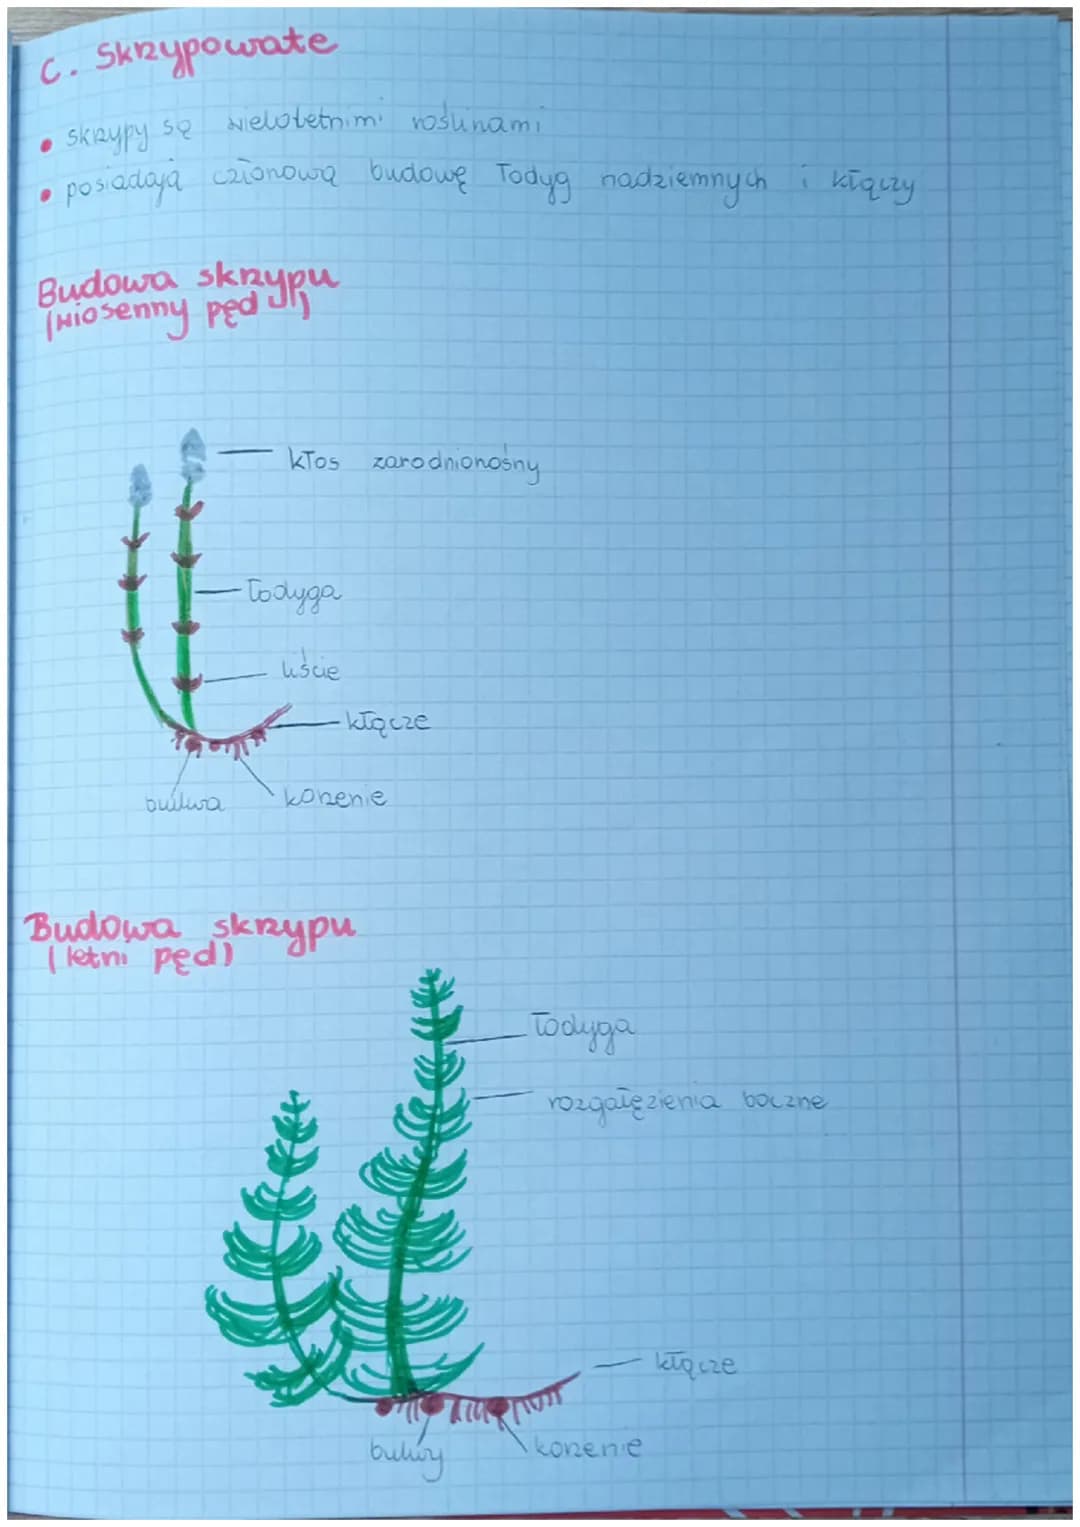 C. Skrzypowate
• skrzypy są wieloletnimi roślinami
• posiadają członową budowę łodyg nadziemnych i kłączy
Budowa skrzypu
(wiosenny pęd)
kłos zarodnionośny
łodyga
liście
kłącze
bulwa
korzenie
Budowa skrzypu
(letni pęd)
łodyga
rozgałęzienia boczne
kłącze
bulwy
korzenie